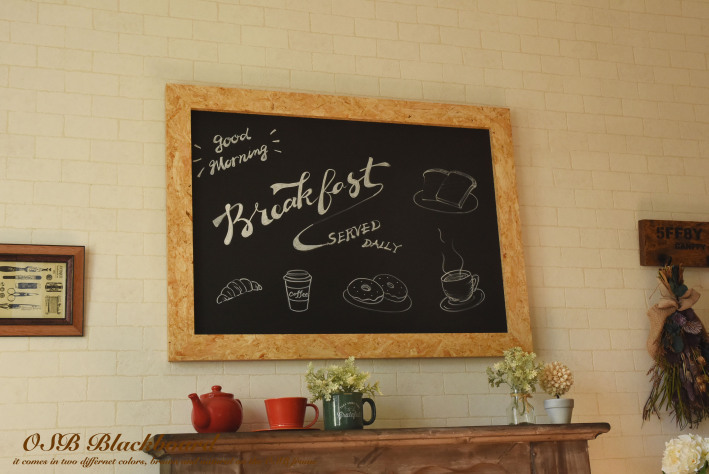 Good
Morning
Breakfast
SERVED
DAILY
Coffee
5FF8Y
OSB Blackboard
it comes in two differnet colors, br